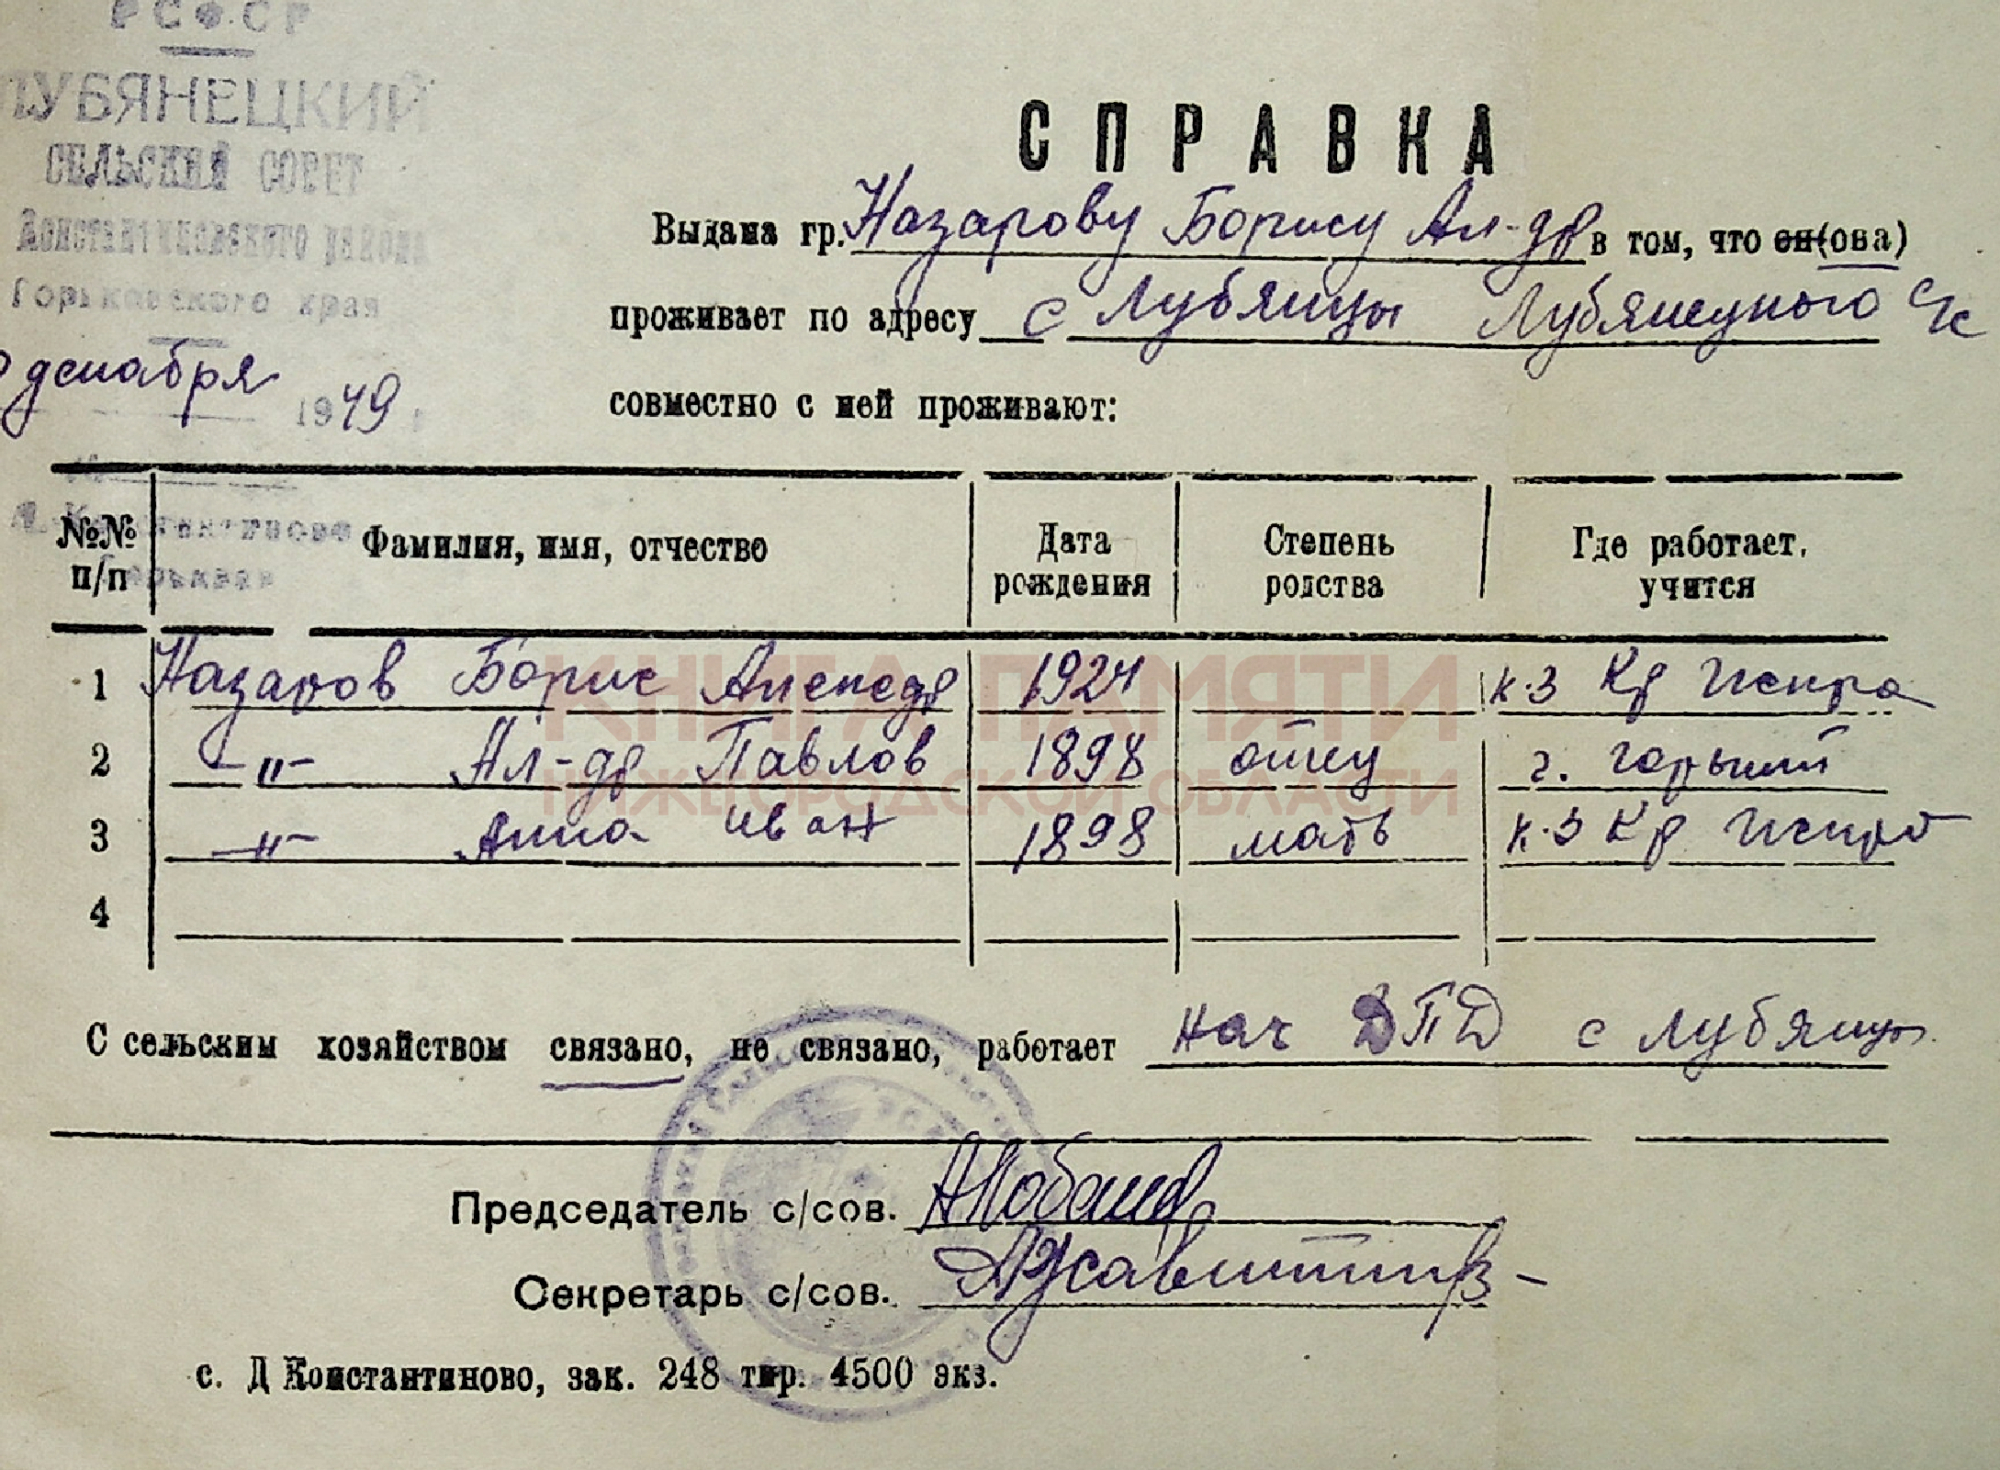 РСФСР
ЛУБЯНЕЦКИЙ
СЕЛЬСКИЙ СОВЕТ
Константиновского района
Горьковского края
декабря 1949 г
СПРАВКА
Выдана гр. Назарову Борису Ал-др в том, что он(она)
проживает по адресу с Лубянцы Лубянецкого с/с
совместно с ней проживают:
№№ п/п Фамилия, имя, отчество Дата рождения Степень родства Где работает, учится
1 Назаров Борис Александр 1924 к-з Кр Искра
2 -"- Ал-др Павлов 1898 отец г. Горький
3 -"- Анна Иван 1898 мать к-з Кр Искра
4
КНИГА ПАМЯТИ
НИЖЕГОРОДСКОЙ ОБЛАСТИ
С сельским хозяйством связано, не связано, работает нач ДПД с Лубянцы
Председатель с/сов.
Секретарь с/сов.
с. Д Константиново, зак. 248 тир. 4500 экз.